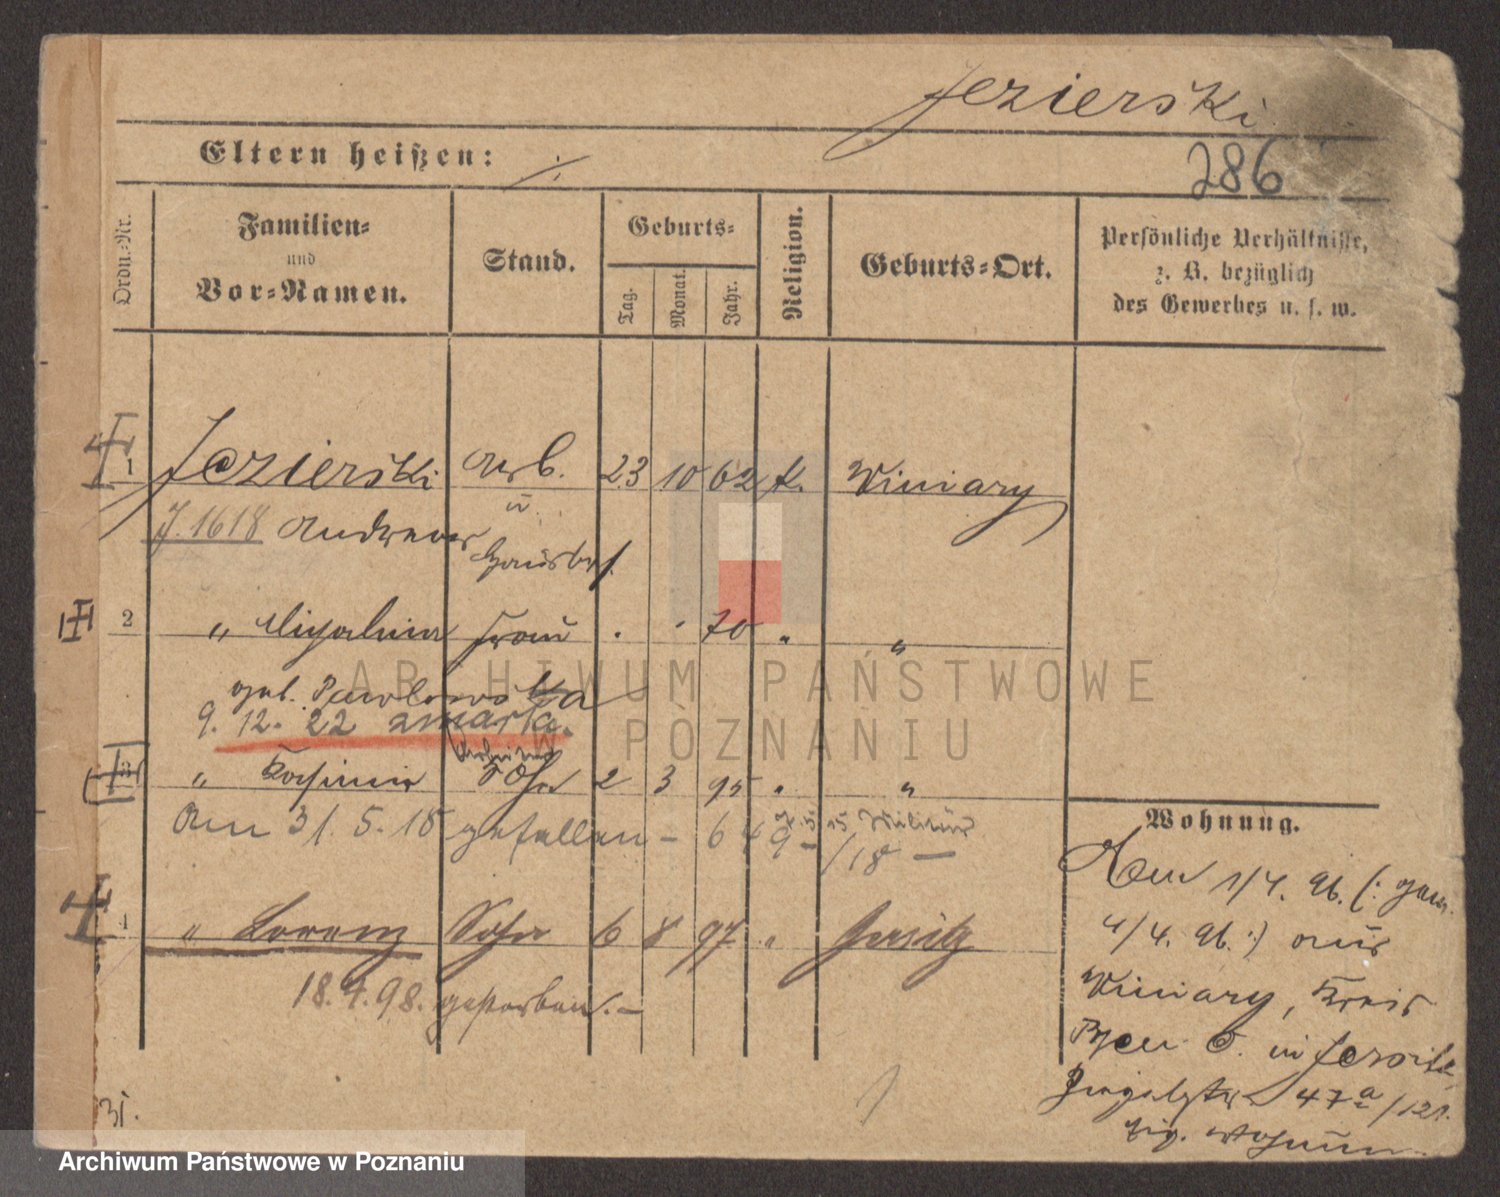 Jezierski
286
Eltern heißen: ./.
Ordn.-Nr.
Familien-
und
Vor-Namen.
Stand.
Geburts-
Tag.
Monat.
Jahr.
Religion.
Geburts-Ort.
Persönliche Verhältnisse,
z. B. bezüglich
des Gewerbes u. s. w.
1 Jezierski Arb. 23 10 62 k. Winiary
J. 1618 Andreas u.
Hausbes.
2 " Michalina Frau . . 70 " "
geb. Pawlowska
9. 12. 22 zmarła.
Arbeiter
3 " Kasimir Sohn 2 3 95 " "
Am 31. 5. 18 gefallen – Militär
/18 –
4 " Lorenz Sohn 6 8 97 " Jersitz
18. 4. 98. gestorben. –
Wohnung.
1/4. 96. (: gem.
4/4. 96. :) aus
Winiary, Kreis
Posen O. in Jersitz
47a/121.
31.
ARCHIWUM PAŃSTWOWE
W POZNANIU
Archiwum Państwowe w Poznaniu